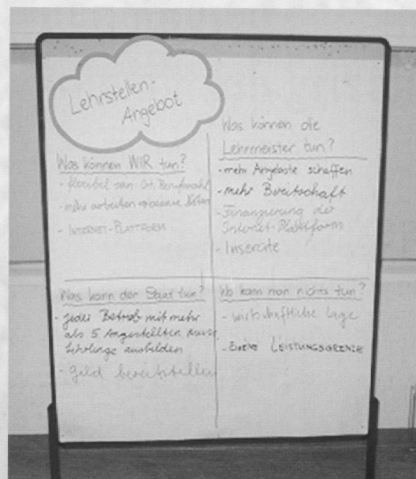 Lehrstellen-
Angebot
Was können WIR tun?
- flexibel sein
- mehr arbeiten
- INTERNET-PLATTFORM
Was können die
Lehrmeister tun?
- mehr Angebote schaffen
- mehr Bereitschaft
- Finanzierung der
Internet-Plattform
- Inserate
Was kann der Staat tun?
- jeder Betrieb mit mehr
als 5 Angestellten muss
Lehrlinge ausbilden
- Geld bereitstellen
Wo kann man nichts tun?
- wirtschaftliche Lage
- LEISTUNGSGRENZE